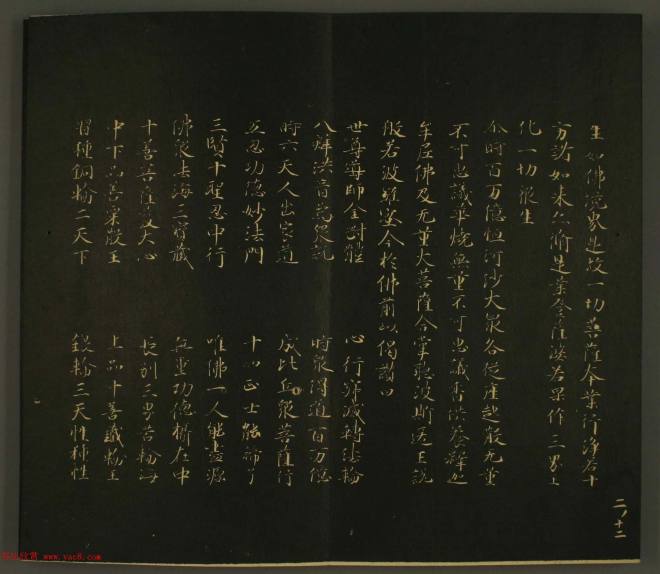 生如佛境界是故一切菩薩本業行淨若十
方諸如來亦修是業登薩婆若果作三界王
化一切眾生
尒時百万億恒河沙大眾各從座起散无量
不可思議華燒無量不可思議香供養釋迦
牟尼佛及无量大菩薩合掌聽波斯匿王說
般若波羅蜜今於佛前以偈讚曰
世尊導師金剛體 心行寂滅轉法輪
八辯洪音為眾說 時眾得道百万億
時六天人出家道 成比丘眾菩薩行
五忍功德妙法門 十四正士能諦了
三賢十聖忍中行 唯佛一人能盡源
佛眾法海三寶藏 無量功德攝在中
十善菩薩發大心 長別三界苦輪海
中下品善粟散王 上品十善鐵輪王
習種銅輪二天下 銀輪三天性種性
二ノ十二
www.yac8.com